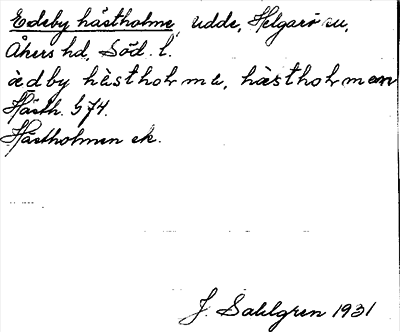 Edeby hästholme, udde, Helgarö sn,
Åkers hd, Söd. l.
ä̀dby hästholme, hästholmen
Hästh. G74.
Hästholmen ek.
J. Sahlgren 1931